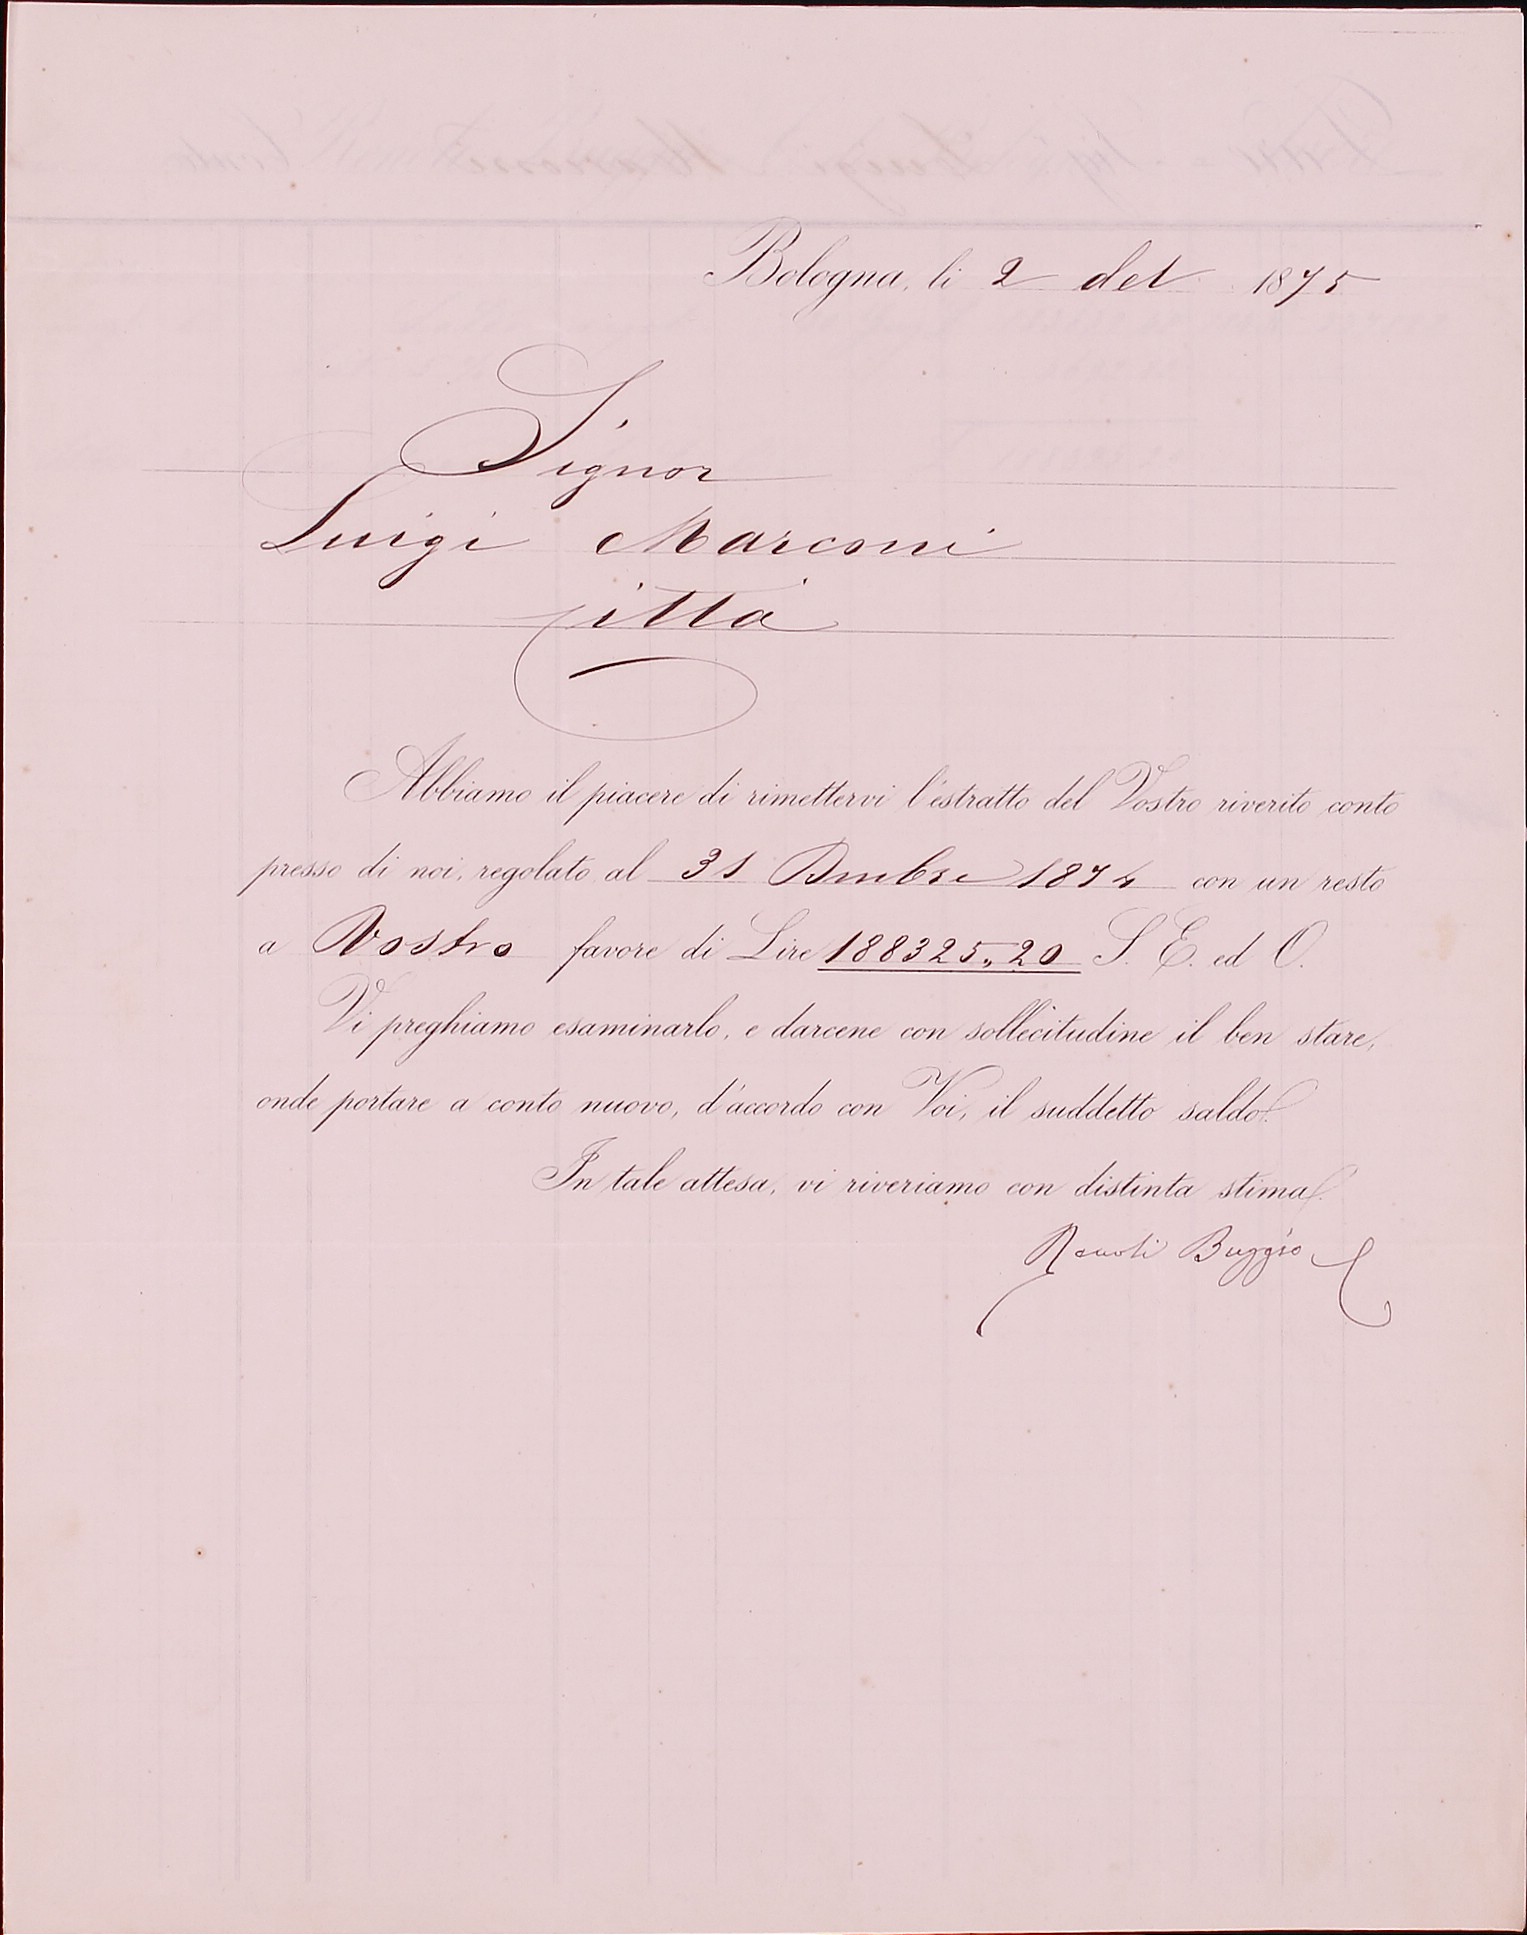 Bologna, li 2 del 1875
Signor
Luigi Marconi
Città
Abbiamo il piacere di rimettervi l'estratto del Vostro riverito conto
presso di noi, regolato al 31 Dmbre 1874 con un resto
a Vostro favore di Lire 188325,20 S. E. ed O.
Vi preghiamo esaminarlo, e darcene con sollecitudine il ben stare,
onde portare a conto nuovo, d'accordo con Voi, il suddetto saldo.
In tale attesa, vi riveriamo con distinta stima.
Buggio